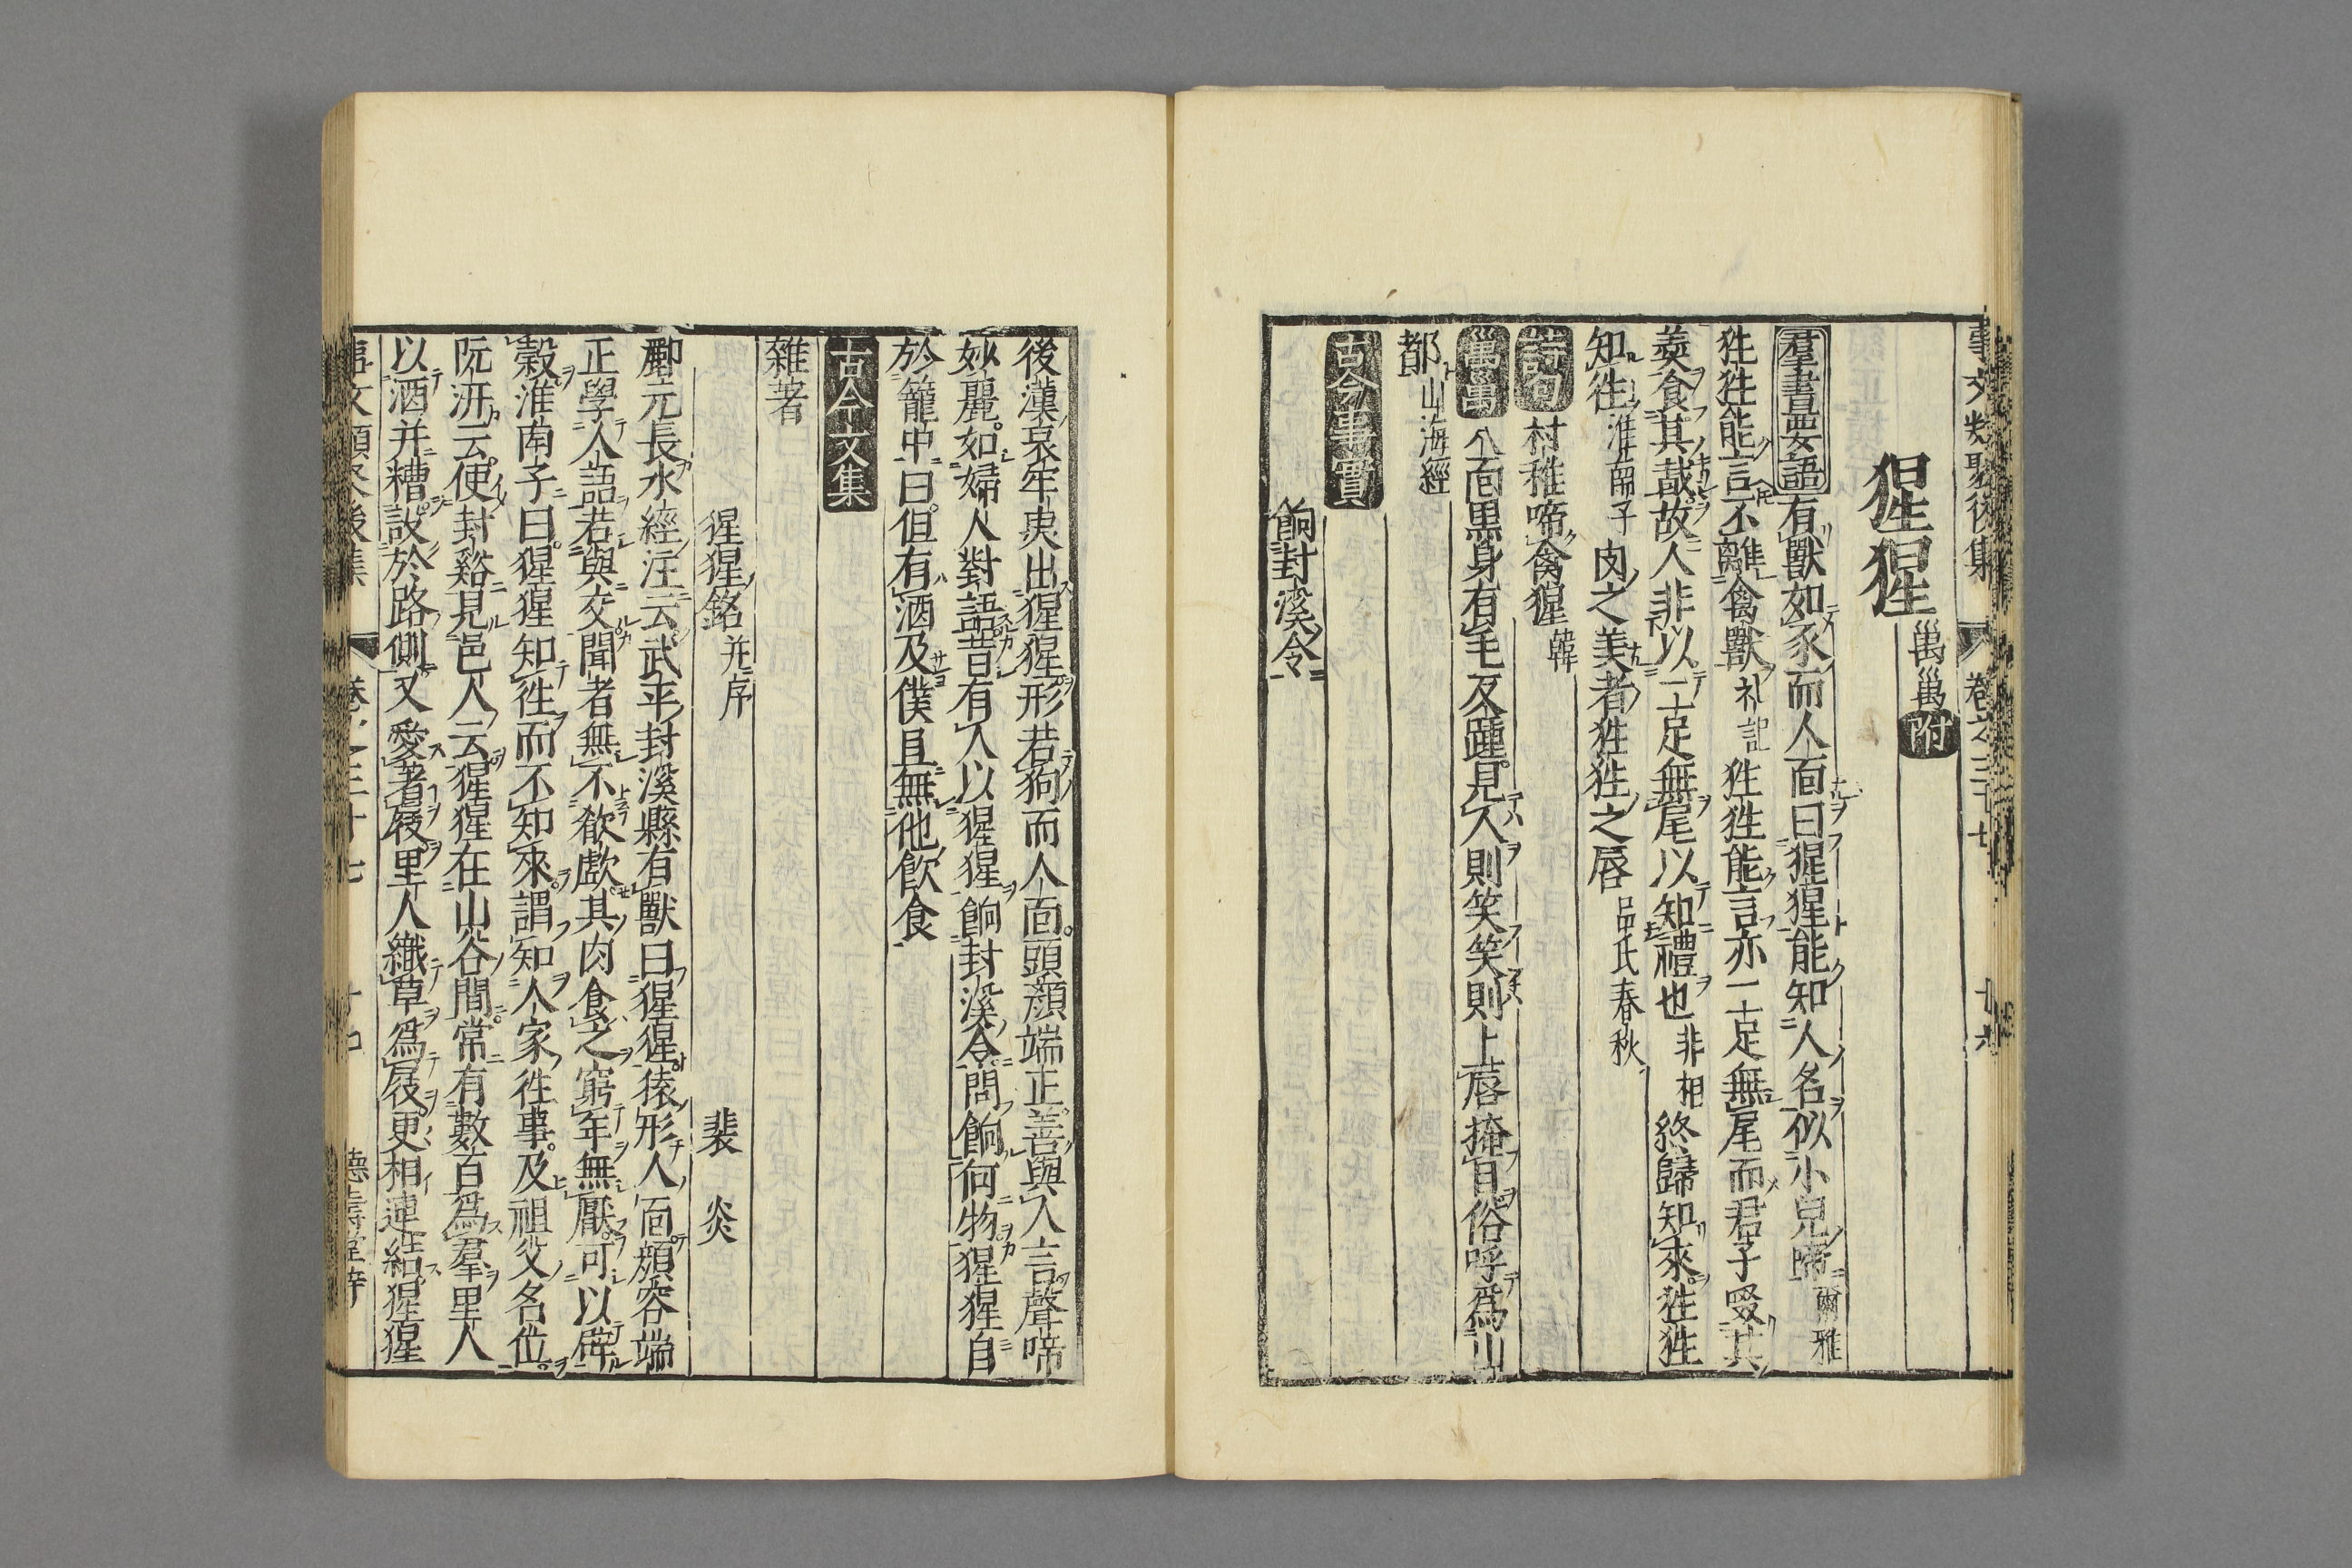 事文類聚後集 卷之三十七
猩猩 𥝋𥝋附
羣書要語 有獸如豕而人面曰猩猩能知人名似小兒啼爾雅
狌狌能言不離禽獸礼記狌狌能言亦二足無尾而君子啜其
羮食其胾故人非以二足無尾以知禮也非相終歸知來狌狌
知往淮南子肉之美者狌狌之唇呂氏春秋
詩句 村稚啼禽猩韓
人面黒身有毛反踵見人則笑笑則上唇掩目俗呼爲山
都山海經
古今事實
餉封溪令
後漢哀牢夷出猩猩形若狗而人面頭顔端正善與人言聲啼
妙麗如婦人對語昔有人以猩猩餉封溪令問餉何物猩猩自
於籠中曰但有酒及僕且無他飲食
古今文集
雜著
猩猩銘并序 裴炎
酈元長水經注云武平封溪縣有獸曰猩猩猿形人面頰容端
正學人語若與交聞者無不欲歔其肉食之窮年無厭可以辟
穀淮南子曰猩猩知往而不知來謂知人家往事及祖父名位
阮汧云使封谿見邑人云猩猩在山谷間常有數百爲羣里人
以酒并糟設於路側又愛著屐里人織草爲屐更相連結猩猩
事文類聚後集 卷之三十七 十四 德壽堂梓